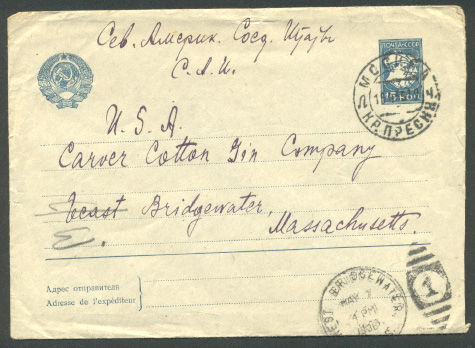 Сев. Америк. Соед. Штаты
С.А.Ш.
ПОЧТА СССР
МОСКВА
КР. ПРЕСНЯ
U. S. A.
Carver Cotton Gin Company
East Bridgewater,
Massachusetts.
E.
Адрес отправителя
Adresse de l'expéditeur
WEST BRIDGEWATER,
MAY 7
4 PM
1